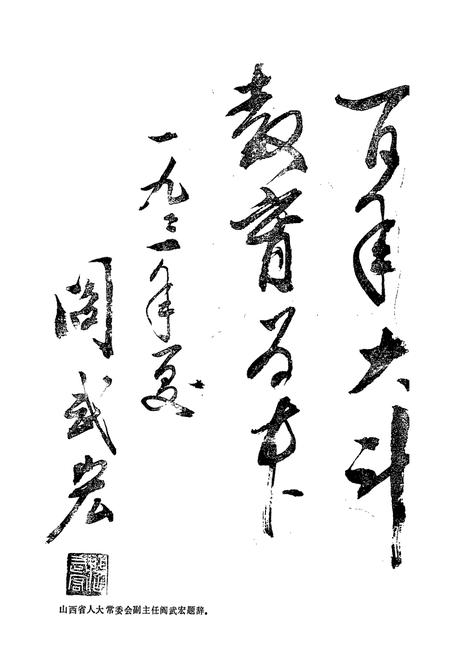 百年大计
教育为本
一九年夏
阎武宏
山西省人大常委会副主任阎武宏题辞。